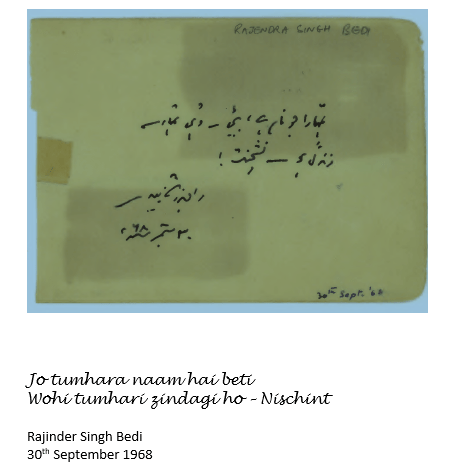 RAJENDRA SINGH BEDI
تمہارا جو نام ہے، بیٹی — وہی تمہاری
زندگی ہو — نشچنت !
راجندر سنگھ بیدی
۳۰ ستمبر ۶۸ء
30th Sept. '68
Jo tumhara naam hai beti
Wohi tumhari zindagi ho – Nischint
Rajinder Singh Bedi
30th September 1968